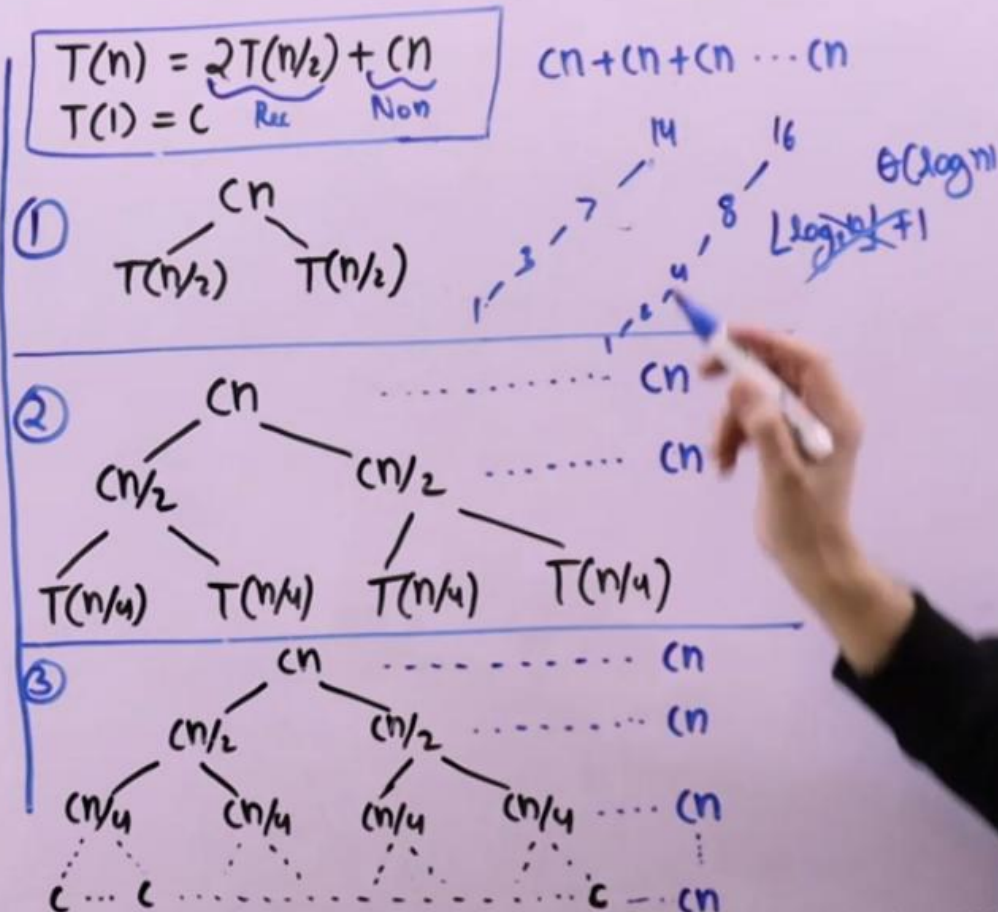 T(n) = 2T(n/2) + Cn
Rec Non
T(1) = C
Cn + Cn + Cn ... Cn
14
7
3
1
16
8
4
2
1
θ(log n)
⌊log₂n⌋ + 1
①
Cn
T(n/2) T(n/2)
②
Cn ........... Cn
Cn/2 Cn/2 ........ Cn
T(n/4) T(n/4) T(n/4) T(n/4)
③
Cn ----------- Cn
Cn/2 Cn/2 ........ Cn
Cn/4 Cn/4 Cn/4 Cn/4 ..... Cn
C ... C .................... C --- Cn